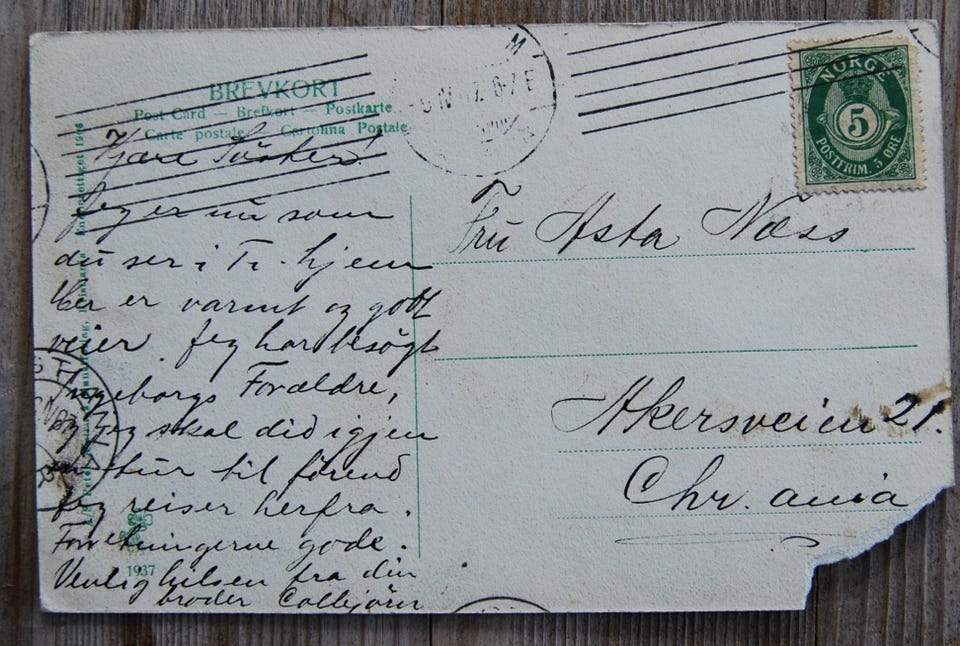 BREVKORT
Post Card — Brefkort — Postkarte
Carte postale — Cartolina Postale
Kjære Søster!
Jeg er nu som
du ser i Tr. hjem
Her er varmt og gott
veier. Jeg har besøgt
Ingeborgs Forældre,
og jeg skal did igjen
en tur til førend
jeg reiser herfra.
Forretningerne gode.
Venlig hilsen fra din
broder Colbjørn
1937
6-7 E
NORGE
5
POSTFRIM. 5 ØRE
Fru Asta Næss
Akersveien 21.
Chr. ania